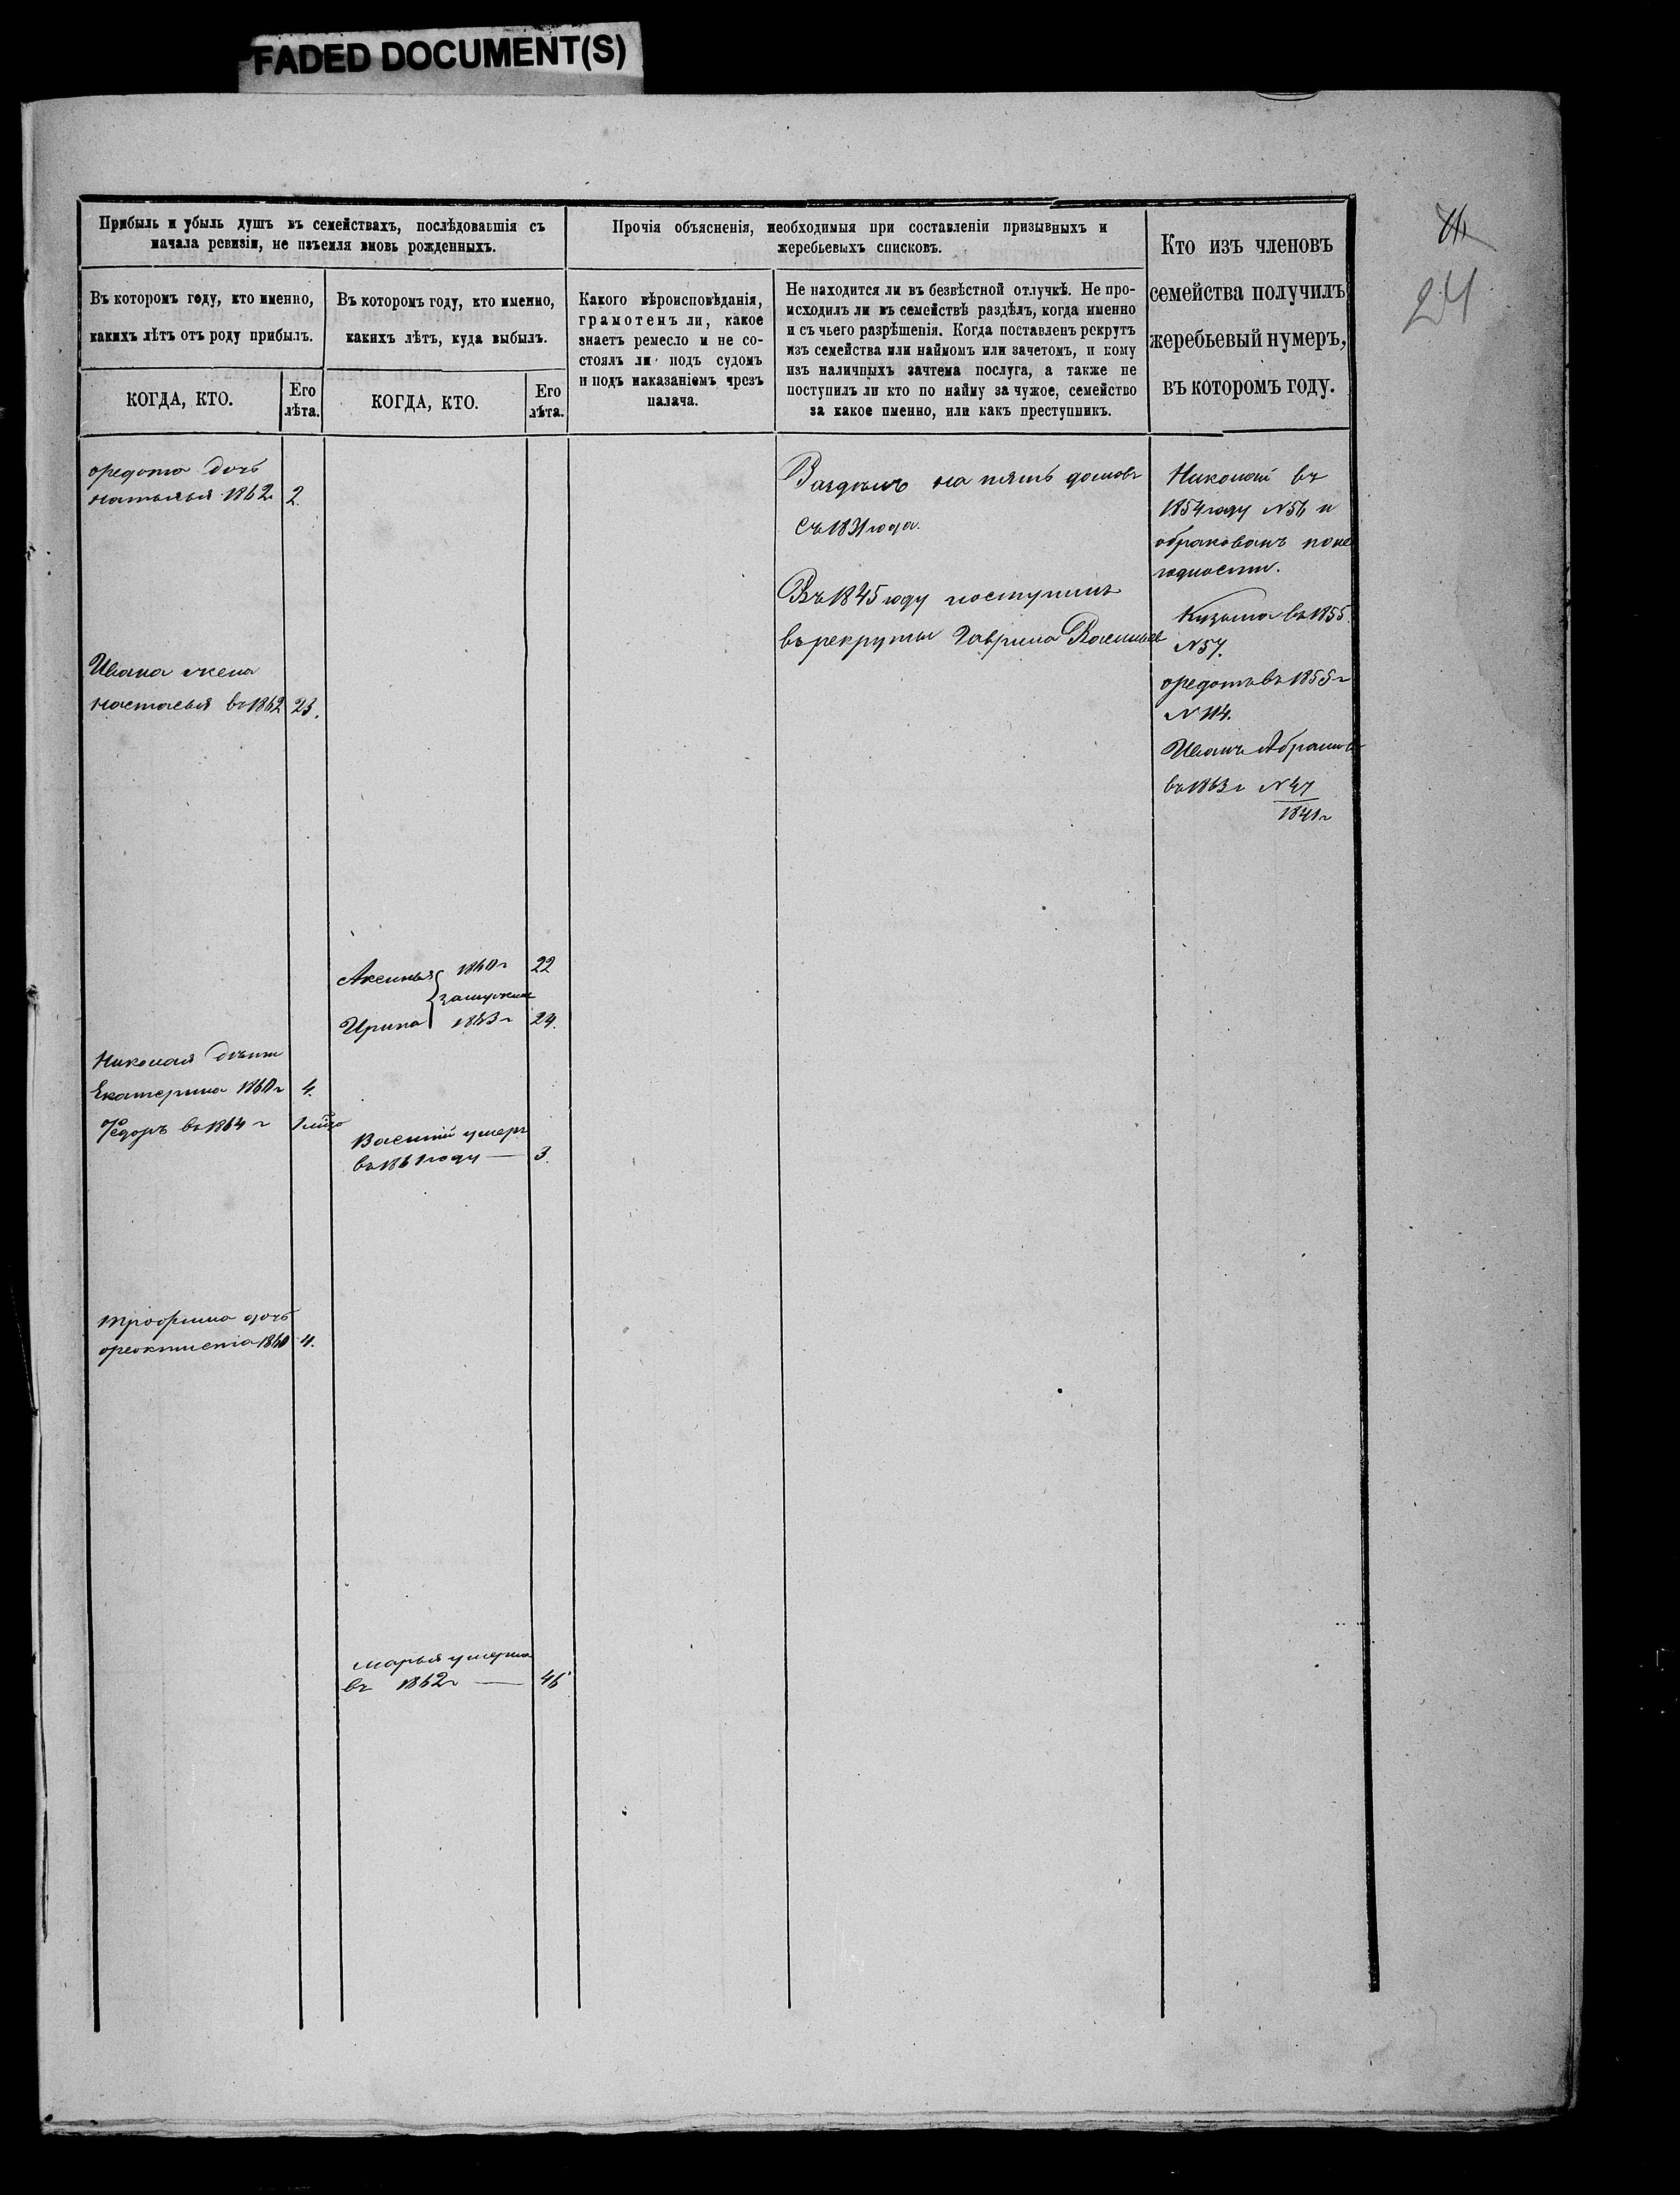 FADED DOCUMENT(S)
24
Прибыль и убыль душъ въ семействахъ, послѣдовавшія съ
начала ревизіи, не изъемля вновь рожденныхъ.
Прочія объясненія, необходимыя при составленіи призывныхъ и
жеребьевыхъ списковъ.
Кто изъ членовъ
семейства получилъ
жеребьевый нумеръ,
въ которомъ году.
Въ которомъ году, кто именно,
какихъ лѣтъ отъ роду прибылъ.
Въ которомъ году, кто именно,
какихъ лѣтъ, куда выбылъ.
Какого вѣроисповѣданія,
грамотенъ ли, какое
знаетъ ремесло и не со-
стоялъ ли подъ судомъ
и подъ наказаніемъ чрезъ
палача.
Не находится ли въ безвѣстной отлучкѣ. Не про-
исходилъ ли въ семействѣ раздѣлъ, когда именно
и съ чьего разрѣшенія. Когда поставленъ рекрутъ
изъ семейства или наймомъ или зачетомъ, и кому
изъ наличныхъ зачтена послуга, а также не
поступилъ ли кто по найму за чужое, семейство
за какое именно, или какъ преступникъ.
КОГДА, КТО.
Его
лѣта.
КОГДА, КТО.
Его
лѣта.
Федота дочь
Наталья 1862 2.
Ивана жена
Настасья въ 1862 23.
Николая дѣти
Екатерина 1860 г 4.
Федоръ въ 1864 г
Трофима дочь
Феоктиста 1860 4.
Аксинья 1860 г 22
замужъ
Ирина 1863 г 24.
Василій умеръ
въ 1861 году — 3.
Марья умерла
въ 1862 г — 46
Раздѣлъ на пять домовъ
съ 1831 года.
Въ 1845 году поступилъ
въ рекруты Гаврила Васильевъ
Николай въ
1854 году №56 и
обракованъ по не
годности.
Кузьма въ 1855
№57.
Федотъ въ 1855 г
№114.
Иванъ Абрамовъ
въ 1863 г №47
1841 г